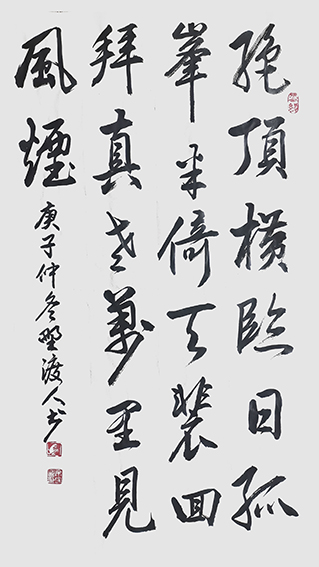 絶頂橫臨日孤
峯半倚天裴回
拜真老萬里見
風煙
庚子仲冬野渡人書